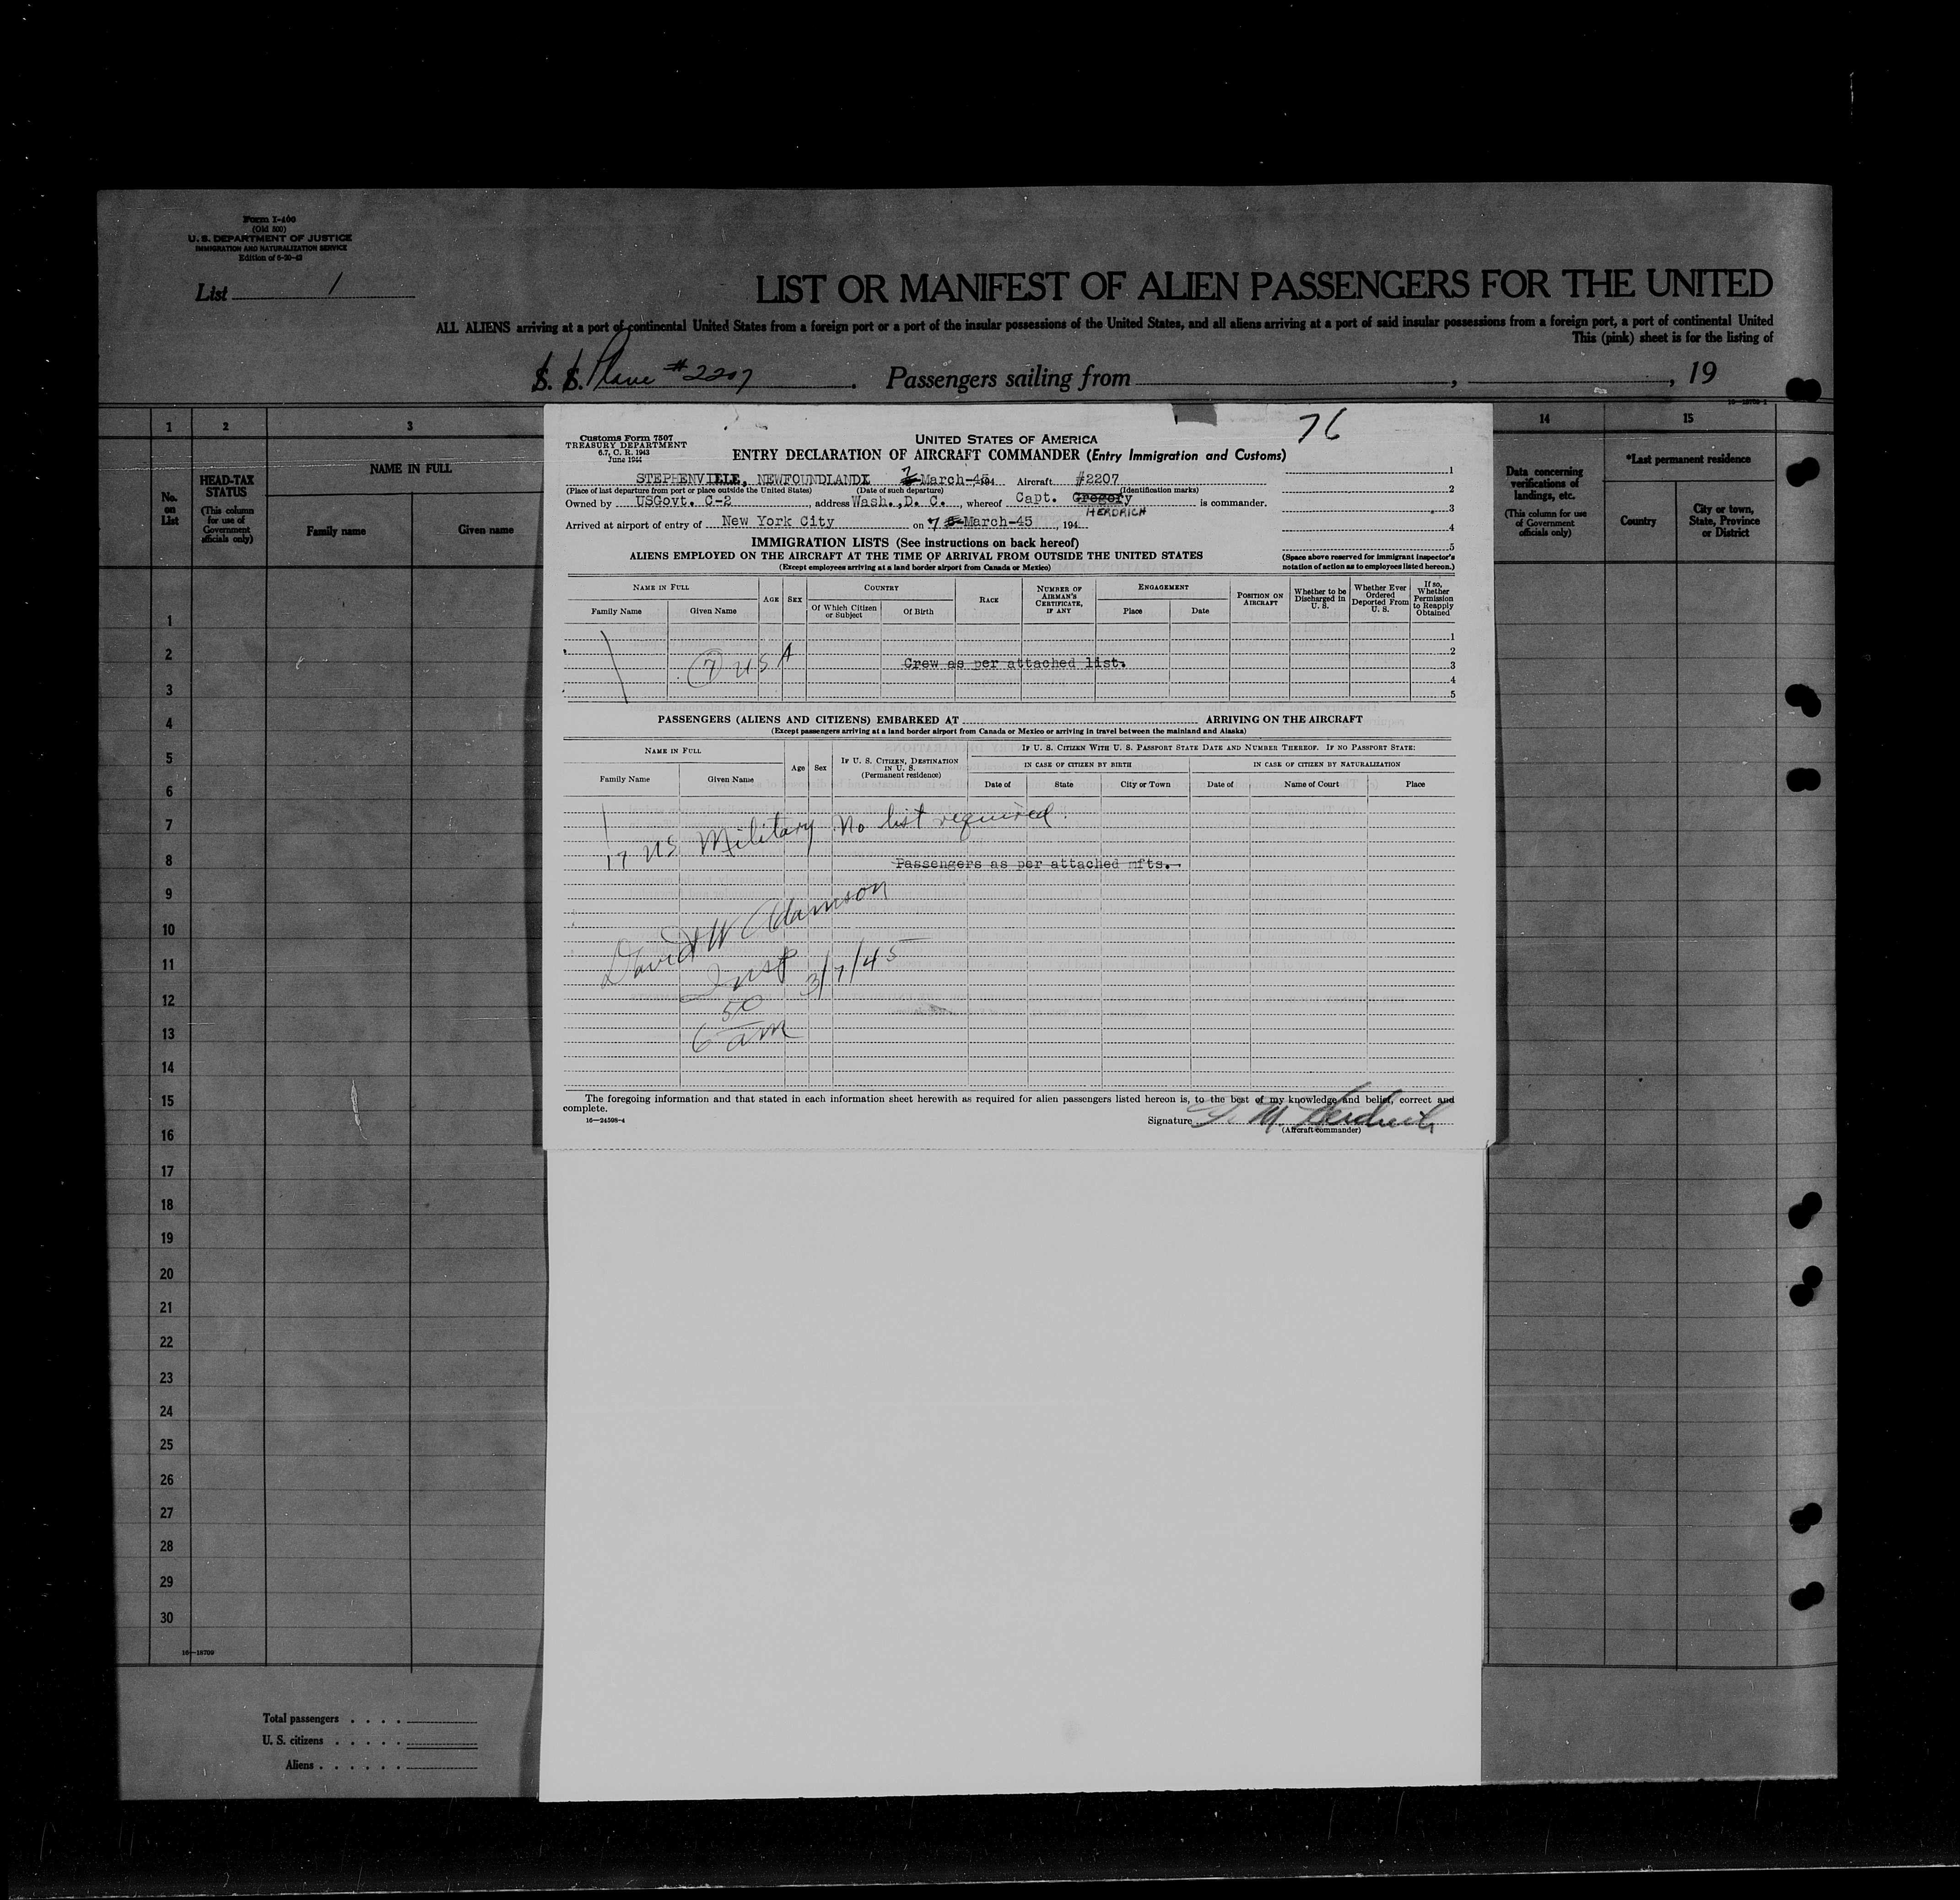 Form I-400
(Old 500)
U. S. DEPARTMENT OF JUSTICE
IMMIGRATION AND NATURALIZATION SERVICE
Edition of 6-20-42
List 1
LIST OR MANIFEST OF ALIEN PASSENGERS FOR THE UNITED
ALL ALIENS arriving at a port of continental United States from a foreign port or a port of the insular possessions of the United States, and all aliens arriving at a port of said insular possessions from a foreign port, a port of continental United
This (pink) sheet is for the listing of
S. S. Plane #2207 . Passengers sailing from , , 19
1 2 3 14 15
No. on List
HEAD-TAX STATUS
(This column for use of Government officials only)
NAME IN FULL
Family name Given name
Data concerning verifications of landings, etc.
(This column for use of Government officials only)
*Last permanent residence
Country
City or town, State, Province or District
76
Customs Form 7507
TREASURY DEPARTMENT
6.7, C. R. 1943
June 1944
UNITED STATES OF AMERICA
ENTRY DECLARATION OF AIRCRAFT COMMANDER (Entry Immigration and Customs)
STEPHENVILLE, NEWFOUNDLAND March-45 Aircraft #2207
(Place of last departure from port or place outside the United States) (Date of such departure) (Identification marks)
Owned by USGovt. C-2 , address Wash., D. C. , whereof Capt. Gregory is commander.
HERDRICH
Arrived at airport of entry of New York City on 7 5 March-45 , 194
1
2
3
4
5
(Space above reserved for immigrant inspector's notation of action as to employees listed hereon.)
IMMIGRATION LISTS (See instructions on back hereof)
ALIENS EMPLOYED ON THE AIRCRAFT AT THE TIME OF ARRIVAL FROM OUTSIDE THE UNITED STATES
(Except employees arriving at a land border airport from Canada or Mexico)
NAME IN FULL
Family Name Given Name
AGE SEX
COUNTRY
Of Which Citizen or Subject
Of Birth
RACE
NUMBER OF AIRMAN'S CERTIFICATE, IF ANY
ENGAGEMENT
Place Date
POSITION ON AIRCRAFT
Whether to be Discharged in U. S.
Whether Ever Ordered Deported From U. S.
If so, Whether Permission to Reapply Obtained
1
2
3
4
5
7 U S A
Crew as per attached list.
PASSENGERS (ALIENS AND CITIZENS) EMBARKED AT ARRIVING ON THE AIRCRAFT
(Except passengers arriving at a land border airport from Canada or Mexico or arriving in travel between the mainland and Alaska)
NAME IN FULL
Family Name Given Name
Age Sex
IF U. S. CITIZEN, DESTINATION IN U. S.
(Permanent residence)
IF U. S. CITIZEN WITH U. S. PASSPORT STATE DATE AND NUMBER THEREOF. IF NO PASSPORT STATE:
IN CASE OF CITIZEN BY BIRTH IN CASE OF CITIZEN BY NATURALIZATION
Date of State City or Town Date of Name of Court Place
17 US Military No list required.
Passengers as per attached mfts.
David W Adamson
Insp 3/7/45
6 50 am
The foregoing information and that stated in each information sheet herewith as required for alien passengers listed hereon is, to the best of my knowledge and belief, correct and
complete.
16—24598-4
Signature M. Herdrich
(Aircraft commander)
1
2
3
4
5
6
7
8
9
10
11
12
13
14
15
16
17
18
19
20
21
22
23
24
25
26
27
28
29
30
16—18709
Total passengers . . . .
U. S. citizens . . . . .
Aliens . . . . . .